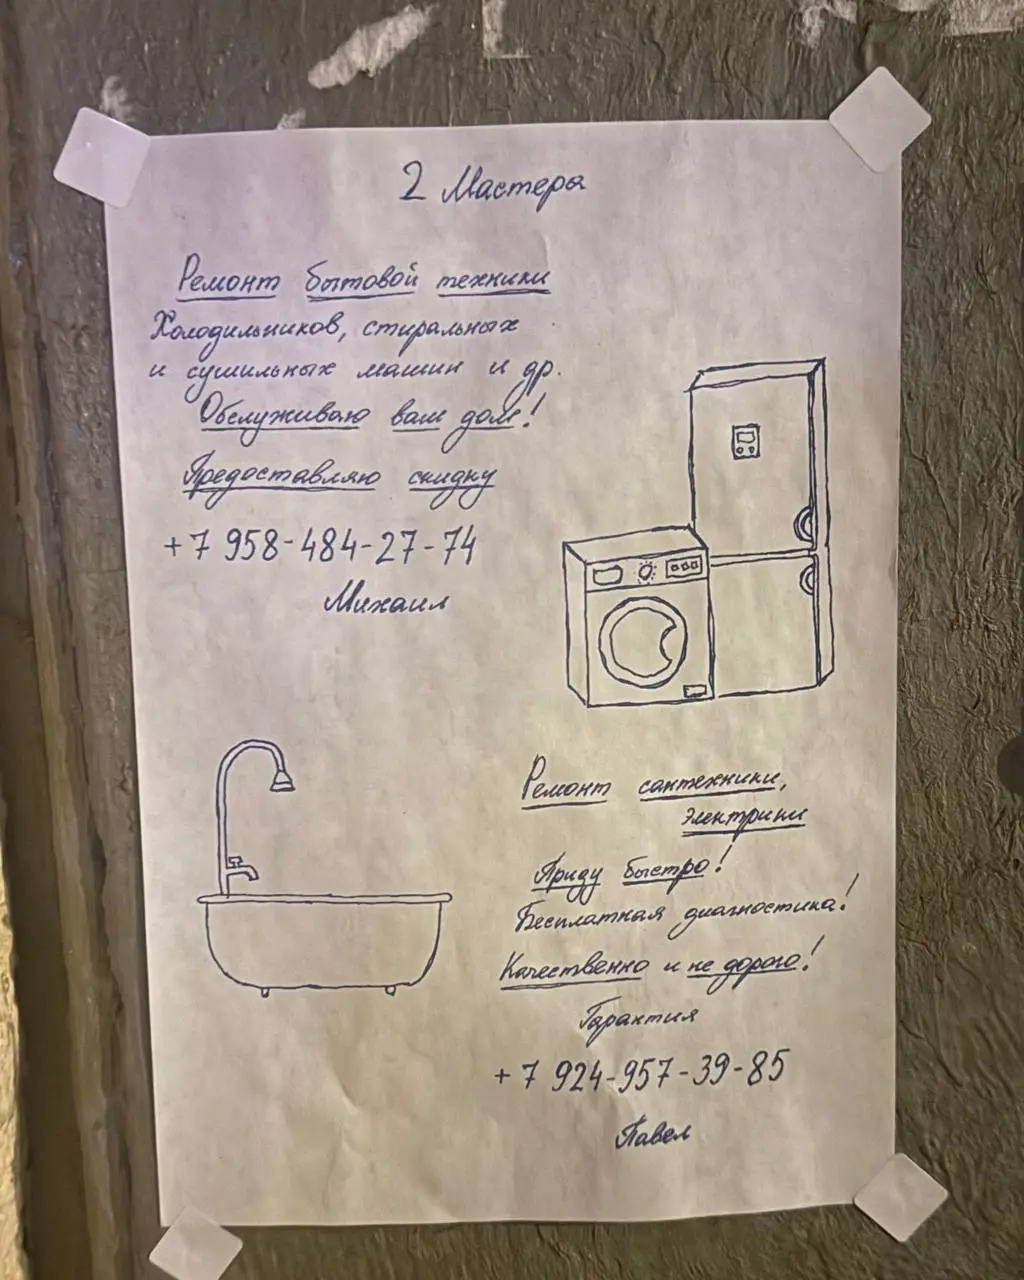 2 Мастера
Ремонт бытовой техники
Холодильников, стиральных
и сушильных машин и др.
Обслуживаю ваш дом!
Предоставляю скидку
+7 958-484-27-74
Михаил
Ремонт сантехники,
электрики
Приду быстро!
Бесплатная диагностика!
Качественно и не дорого!
Гарантия
+7 924-957-39-85
Павел